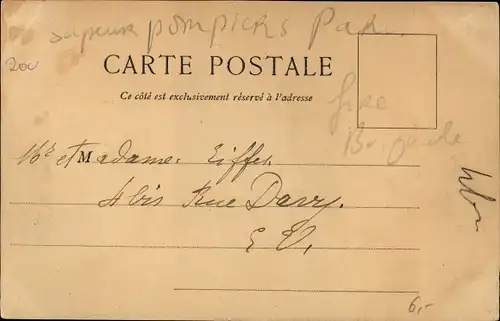 sapeur pompiers Paris
200
CARTE POSTALE
Ce côté est exclusivement réservé à l'adresse
fire
Brigade
Mr et Madame Eiffel
4 bis Rue Davy.
E. V.
6,-